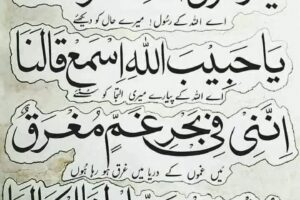 اے اللہ کے رسول! میرے حال کو دیکھئے
يَا حَبِيبَ اللهِ اسْمَعْ قَالَنَا
اے اللہ کے پیارے میری التجا کو سنئے
اِنَّنِي فِي بَحْرِ غَمٍّ مُغْرَقٌ
میں غموں کے دریا میں غرق ہو رہا ہوں